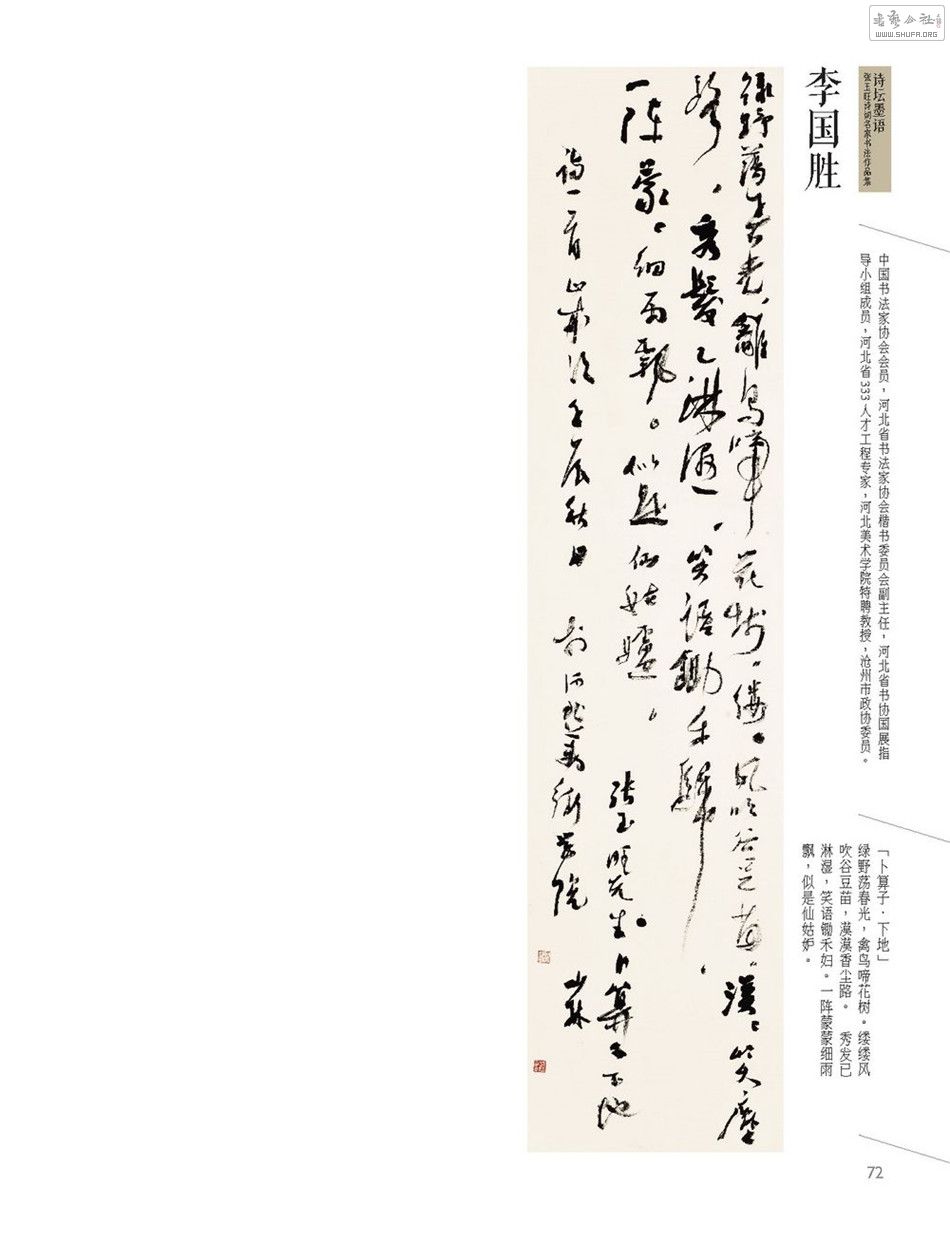 书艺公社
WWW.SHUFA.ORG
诗坛墨语
张玉旺诗词名家书法作品集
李国胜
中国书法家协会会员，河北省书法家协会楷书委员会副主任，河北省书协国展指
导小组成员，河北省333人才工程专家，河北美术学院特聘教授，沧州市政协委员。
「卜算子·下地」
绿野荡春光，禽鸟啼花树。缕缕风
吹谷豆苗，漠漠香尘路。 秀发已
淋湿，笑语锄禾妇。一阵蒙蒙细雨
飘，似是仙姑妒。
绿野荡春光，禽鸟啼花树，缕。风吹谷豆苗，漠。尘
路，秀发已淋湿，笑语锄禾归，
一阵蒙。细雨飘。似是仙姑妒，
张玉旺先生卜算子下地
词一首 壬辰秋日 学院
72